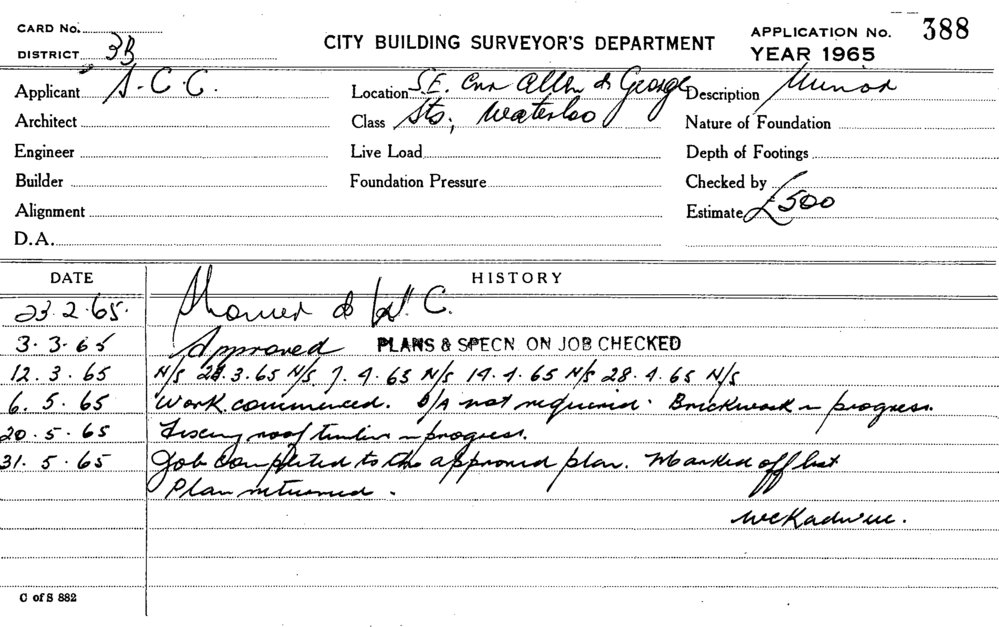 CARD No.
DISTRICT 3B
CITY BUILDING SURVEYOR'S DEPARTMENT
APPLICATION No. 388
YEAR 1965
Applicant S.C.C.
Location S.E. Cnr Allen & George
Description Minor
Architect
Class Sts, Waterloo
Nature of Foundation
Engineer
Live Load
Depth of Footings
Builder
Foundation Pressure
Checked by
Alignment
Estimate £500
D.A.
DATE HISTORY
23.2.65. Shower & W.C.
3.3.65 Approved PLANS & SPECN. ON JOB CHECKED
12.3.65 N/S 24.3.65 N/S 7.4.65 N/S 14.4.65 N/S 28.4.65 N/S
6.5.65 Work commenced. D/A not required. Brickwork in progress.
20.5.65 Fixing roof timbers in progress.
31.5.65 Job completed to the approved plan. Marked off list
Plan returned.
C of S 882